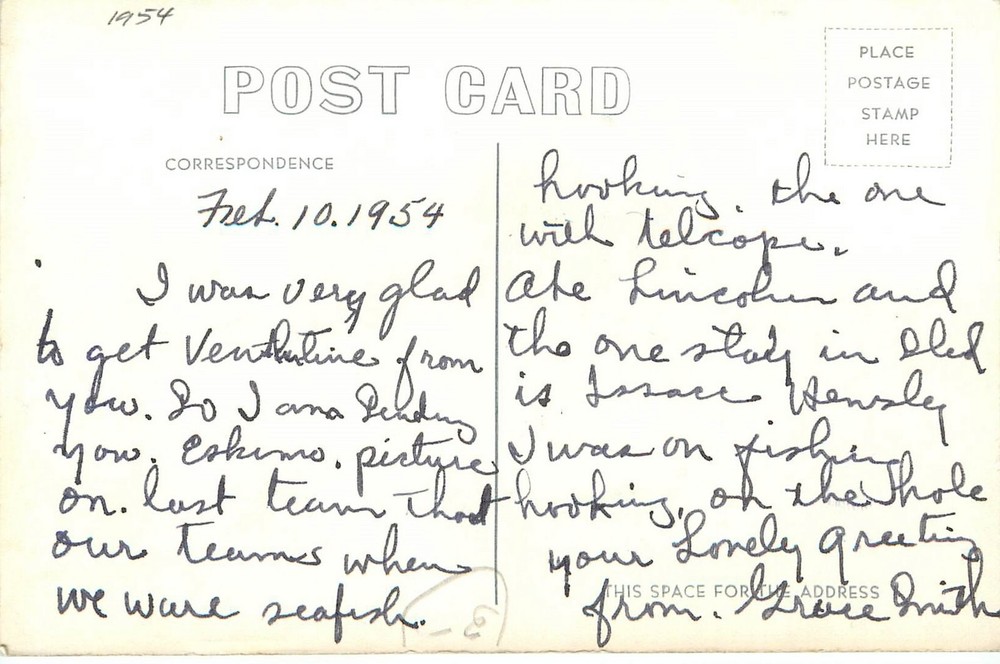 1954
POST CARD
PLACE
POSTAGE
STAMP
HERE
CORRESPONDENCE
Feb. 10. 1954
I was very glad
to get Venthutine from
you. So I ama Sending
you. Eskimo. picture
on. last team that
our teams when
we ware seafish.
hooking. the one
with telcope.
Abe Lincolen and
the one stady in Sled
is Issacc Hensly
I was on fishing
hooking. on the hole
your Lovely greeting
from. Grace Smith
THIS SPACE FOR THE ADDRESS